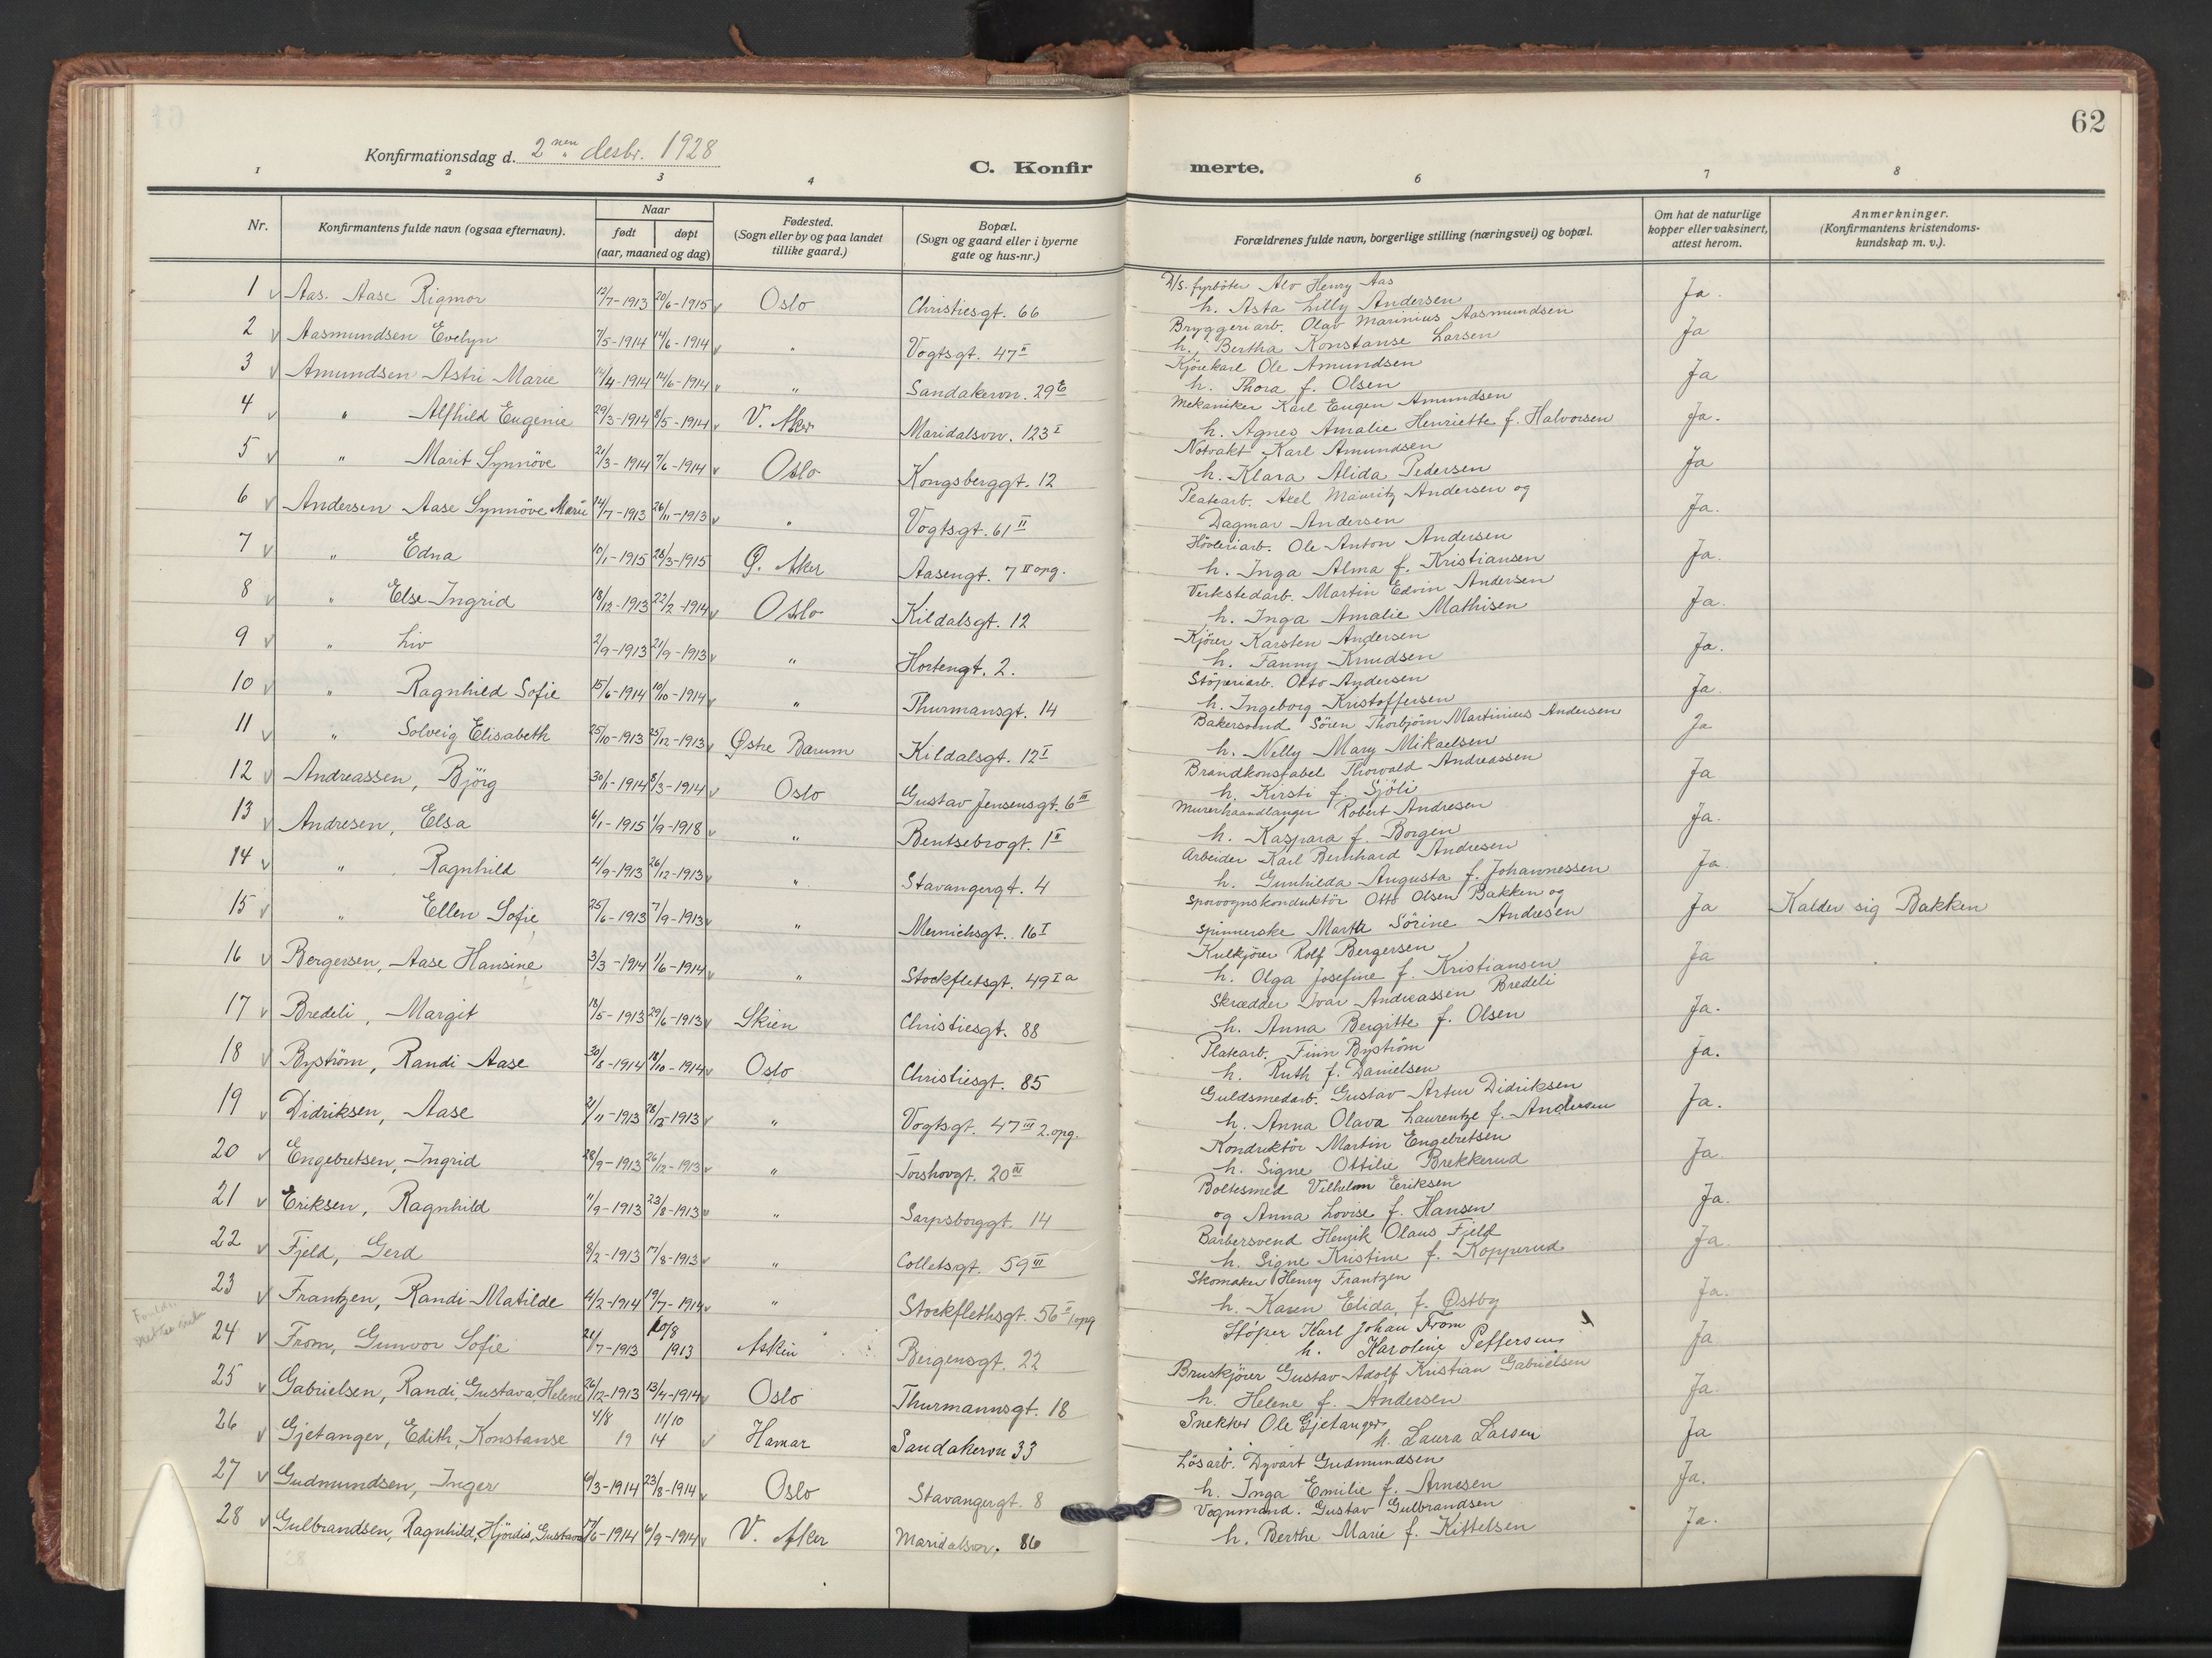 62
Konfirmationsdag d. 2nen desbr. 1928
C. Konfirmerte.
1 2 3 4 6 7 8
Nr. Konfirmantens fulde navn (ogsaa efternavn). Naar født døpt (aar, maaned og dag) Fødested. (Sogn eller by og paa landet tillike gaard.) Bopæl. (Sogn og gaard eller i byerne gate og hus-nr.) Forældrenes fulde navn, borgerlige stilling (næringsvei) og bopæl. Om hat de naturlige kopper eller vaksinert, attest herom. Anmerkninger. (Konfirmantens kristendomskundskap m. v.).
1 v Aas. Aase Rigmor 12/7-1913 20/6-1915 v Oslo Christiesgt. 66 D/s. fyrböter Alv Henry Aas Ja.
h. Asta Lilly Andersen
2 v Aasmundsen Evelyn 7/5-1914 14/6-1914 v " Vogtsgt. 47 II Bryggeriarb. Olav Marinius Aasmundsen Ja
h. Bertha Konstanse Larsen
3 v Amundsen Astri Marie 14/4-1914 14/6-1914 v " Sandakervn. 29 b Kjørekarl Ole Amundsen Ja
h. Thora f. Olsen
4 v " Alfhild Eugenie 29/3-1914 8/5-1914 v V. Aker Maridalsvn. 123 I Mekaniker Karl Eugen Amundsen Ja.
h. Agnes Amalie Henriette f. Halvorsen
5 v " Marit Synnöve 21/3-1914 7/6-1914 v Oslo Kongsberggt. 12 Notvakt Karl Amundsen Ja
h. Klara Alida Pedersen
6 v Andersen Aase Synnöve Marie 14/7-1913 26/11-1913 v " Vogtsgt. 61 II Platearb. Axel Mauritz Andersen og Ja.
Dagmar Andersen
7 v " Edna 10/1-1915 28/3-1915 Ø. Aker Aasengt. 7 II opg. Høvleriarb. Ole Anton Andersen Ja.
h. Inga Alma f. Kristiansen
8 v " Else Ingrid 18/12-1913 22/2-1914 v Oslo Kildalsgt. 12 Verkstedarb. Martin Edvin Andersen Ja.
h. Inga Amalie Mathisen
9 v " Liv 2/9-1913 21/9-1913 v " Hortengt. 2. Kjörer Karsten Andersen Ja.
h. Fanny Knudsen
10 v " Ragnhild Sofie 15/6-1914 19/10-1914 v " Thurmansgt. 14 Stöperiarb. Otto Andersen Ja.
h. Ingeborg Kristoffersen
11 v " Solveig Elisabeth 25/10-1913 25/12-1913 v Østre Bærum Kildalsgt. 12 I Bakersvend Sören Thorbjörn Martinius Andersen Ja
h. Nelly Mary Mikaelsen
12 v Andreassen, Björg 30/1-1914 8/3-1914 v Oslo Gustav Jensensgt. 6 III Brandkonstabel Thorvald Andreassen Ja
h. Kirsti f. Sjöli
13 v Andresen, Elsa 6/1-1915 1/9-1918 v " Bentsebrogt. 1 II Murerhaandlanger Robert Andresen Ja.
h. Kaspara f. Borgen
14 v " Ragnhild 4/9-1913 26/12-1913 v " Stavangergt. 4 Arbeider Karl Bernhard Andresen Ja.
h. Gunhilda Augusta f. Johannessen
15 v " Ellen Sofie 25/6-1913 7/9-1913 v " Mernichsgt. 16 I Sporvognskonduktör Otto Olsen Bakken og Ja Kalder sig Bakken
Spinnerske Marthe Sörine Andresen
16 v Bergersen, Aase Hansine 3/3-1914 1/6-1914 v " Stockfletsgt. 49 I a Kulkjörer Rolf Bergersen Ja
h. Olga Josefine f. Kristiansen
17 v Bredeli, Margit 18/5-1913 29/6-1913 v Skien Christiesgt. 88 Skrædder Ivar Andreassen Bredeli Ja.
h. Anna Bergitte f. Olsen
18 v Byström, Randi Aase 30/8-1914 18/10-1914 v Oslo Christiesgt. 85 Platearb. Finn Byström Ja.
h. Ruth f. Danielsen
19 v Didriksen, Aase 21/11-1913 28/12-1913 v " Vogtsgt. 47 III 2. opg. Guldsmedarb. Gustav Artur Didriksen Ja.
h. Anna Olava Laurentze f. Andersen
20 v Engebretsen, Ingrid 28/9-1913 26/12-1913 v " Torshovgt. 20 III Konduktör Martin Engebretsen Ja.
h. Signe Ottilie Brekkerud
21 v Eriksen, Ragnhild 11/9-1913 23/8-1913 v " Sarpsborggt. 14 Boltesmed Vilhelm Eriksen Ja.
og Anna Lovise f. Hansen
22 v Fjeld, Gerd 8/2-1913 17/8-1913 v " Colletsgt. 59 III Barbersvend Henrik Olaus Fjeld Ja.
h. Signe Kristine f. Kopperud
23 v Frantzen, Randi Matilde 4/2-1914 19/7-1914 v " Stockflethsgt. 56 II 1 opg Skomaker Henry Frantzen Ja.
h. Karen Elida f. Østby
24 v From, Gunvor Sofie 21/7-1913 10/8 1913 Askim Bergensgt. 22 Stöper Karl Johan From Ja
h. Karoline Pettersen
25 v Gabrielsen, Randi, Gustava, Helene 26/12-1913 13/4-1914 v Oslo Thurmannsgt. 18 Bruskjörer Gustav Adolf Kristian Gabrielsen Ja.
h. Helene f. Andersen
26 v Gjetanger, Edith, Konstanse 4/8 19 11/10 14 v Hamar Sandakervn 33 Snekker Ole Gjetanger Ja
h. Laura Larsen
27 v Gudmundsen, Inger 6/3-1914 23/8-1914 v Oslo Stavangergt. 8 Lösarb. Dyvart Gudmundsen Ja.
h. Inga Emilie f. Arnesen
28 v Gulbrandsen, Ragnhild, Hjördis, Gustava 17/6-1914 6/9-1914 v V. Aker Maridalsvn. 86 Vognmand. Gustav Gulbrandsen Ja.
h. Berthe Marie f. Kittelsen
28